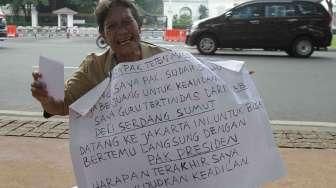 PAK
SAYA PAK. SUDAH
JUANG UNTUK KEADILAN
SAYA GURU TERTINDAS DARI
DELI SERDANG SUMUT
DATANG KE JAKARTA INI UNTUK BISA
BERTEMU LANGSUNG DENGAN
PAK PRESIDEN
HARAPAN TERAKHIR SAYA
KEADILAN